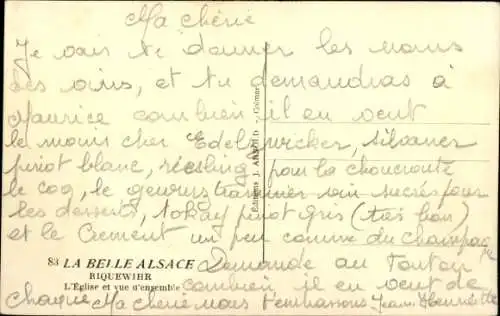 Ma chérie
Je vais te donner les noms
des vins, et tu demandras à
Maurice combien il en veut
le moins cher Edelzwicker, silvaner
pinot blanc, riesling pour la choucroute
le coq, le gewurstraminer vin sucrés pour
les desserts, tokay pinot gris (très bon)
et le Crement un peu comme du champagne
83 LA BELLE ALSACE
RIQUEWIHR
L'Église et vue d'ensemble
Demande au Tonton
combien il en veut de
chaque Ma chérie nous t'embrassons Jean Henriette
Editions J. Colmar